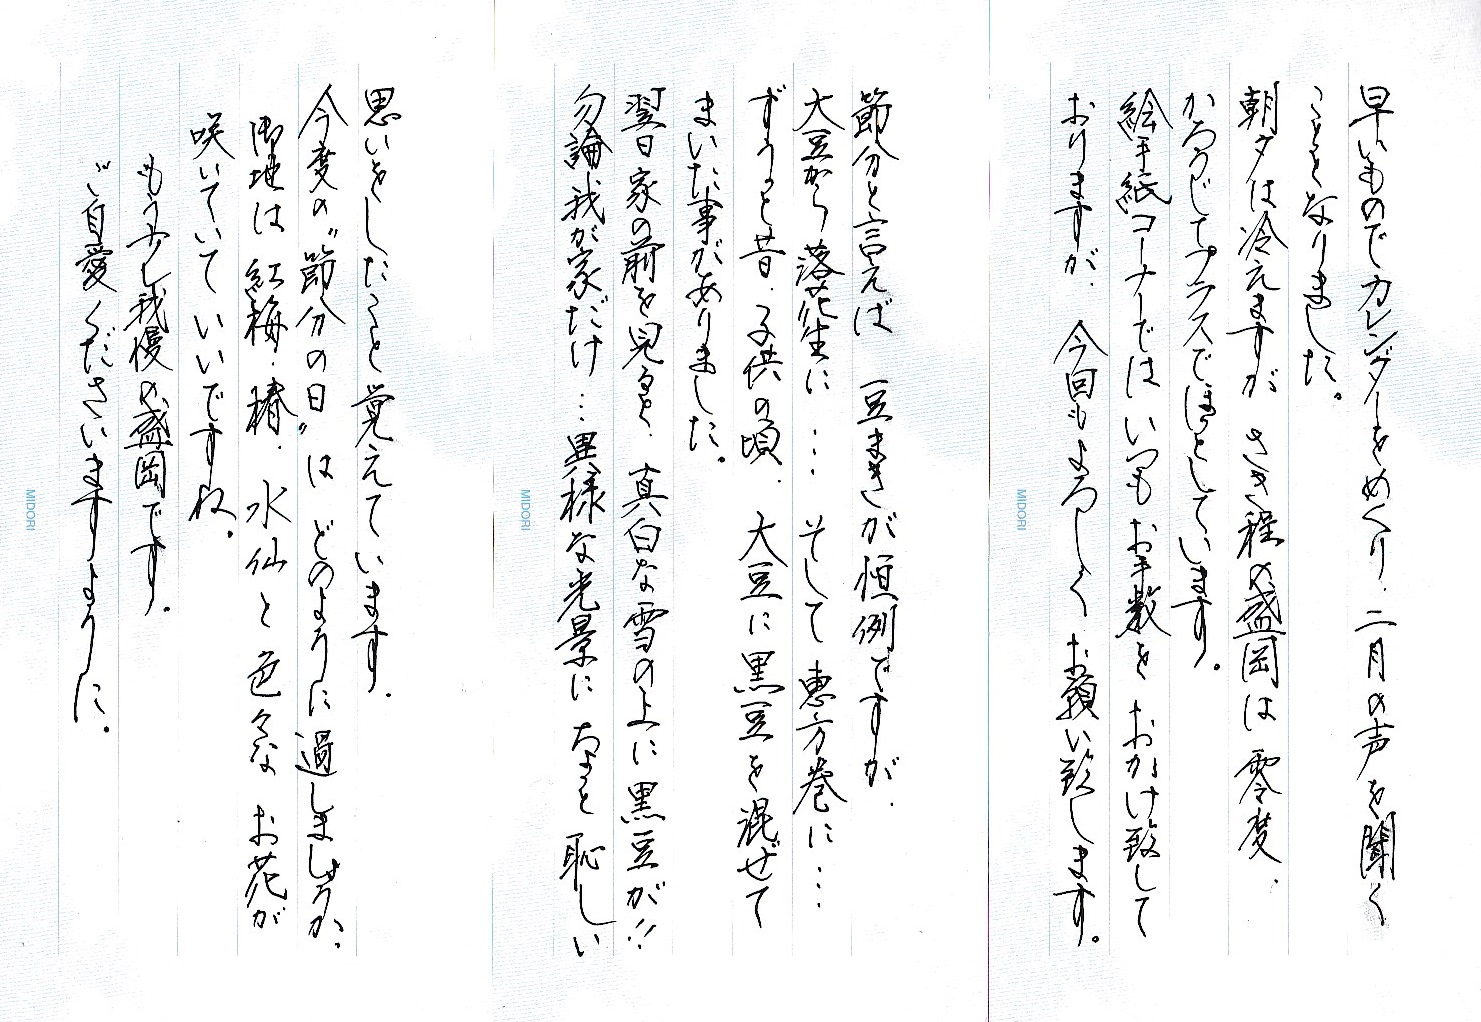 早いものでカレンダーをめくり、二月の声を聞く
こととなりました。
朝夕は冷えますが さき程の盛岡は 零度、
かろうじてプラスでほっとしています。
絵手紙コーナーではいつも お手数を おかけ致して
おりますが、今回もよろしく お願い致します。
MIDORI
節分と言えば 豆まきが恒例ですが、
大豆から落花生に… そして 恵方巻に…
ずうっと昔、子供の頃、大豆に黒豆を混ぜて
まいた事がありました。
翌日 家の前を見ると、真白な雪の上に黒豆が!!
勿論 我が家だけ…異様な光景に なっと 恥しい
MIDORI
思いをしたことを覚えています。
今度の"節分の日"は どのように過しましょうか、
御地は 紅梅、椿、水仙と 色々な お花が
咲いていて いいですね。
もう少し我慢の盛岡です。
ご自愛くださいますように。
MIDORI